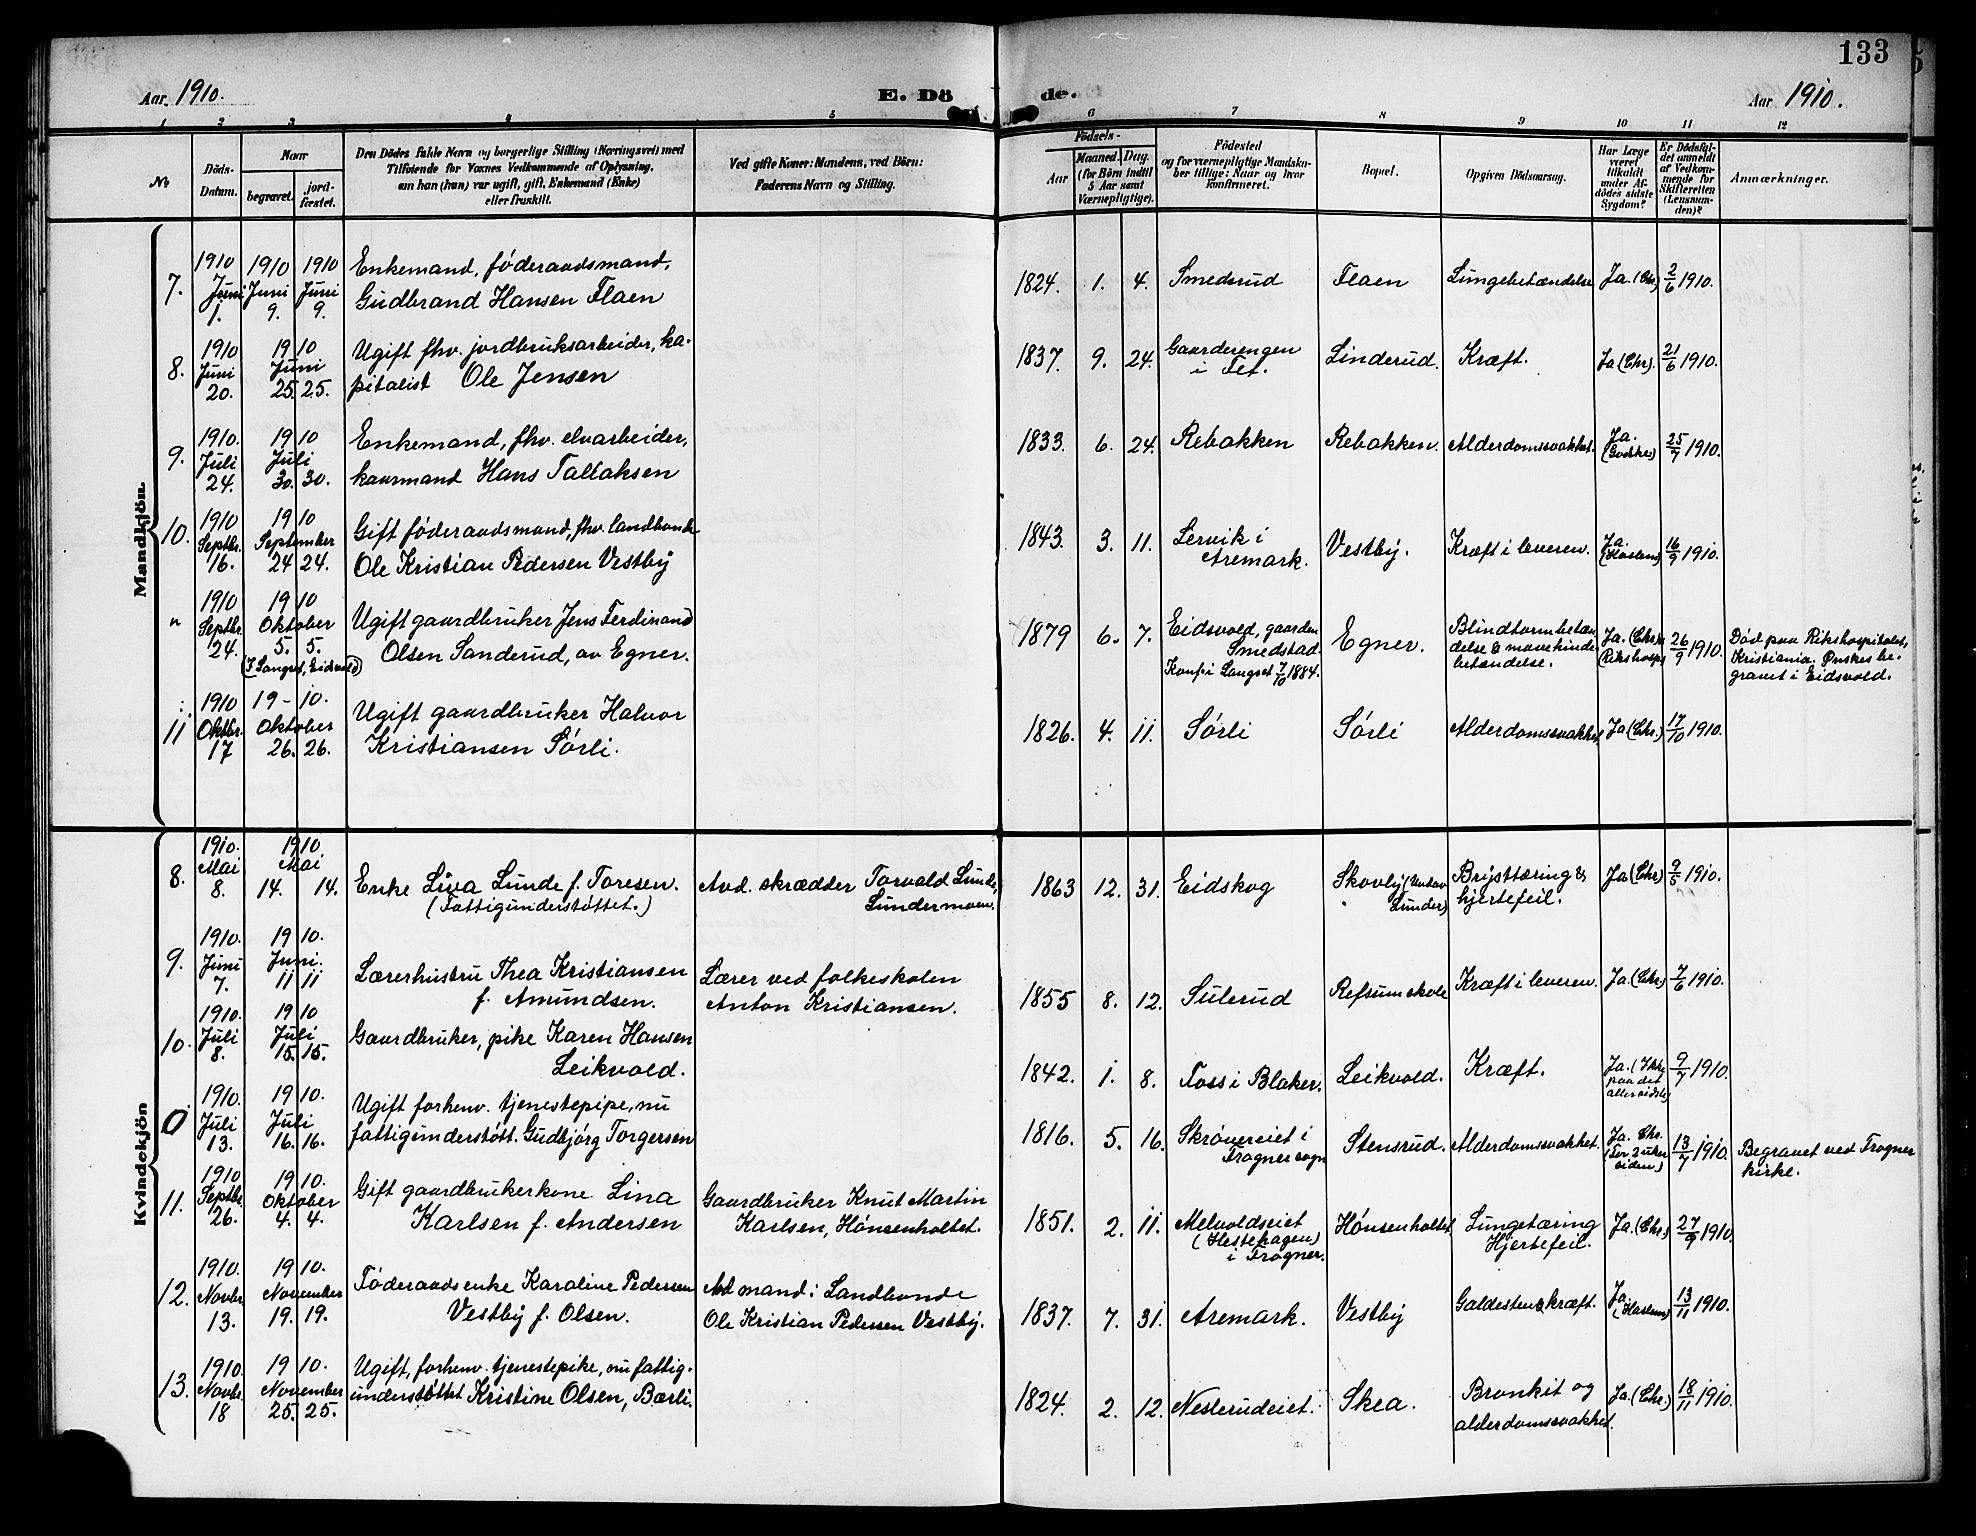 133
Aar 1910.
E. Dö
de.
Aar 1910.
1 2 3 4 5
6 7 8 9 10 11 12
№
Döds-
Datum.
Naar
begravet.
jord-
fæstet.
Den Dödes fulde Navn og borgerlige Stilling (Næringsvei) med
Tilföiende for Voxnes Vedkommende af Oplysning,
om han (hun) var ugift, gift, Enkemand (Enke)
eller fraskilt.
Ved gifte Koner: Mandens, ved Börn:
Faderens Navn og Stilling.
Födsels-
Aar
Maaned. Dag.
(for Börn indtil
5 Aar samt
Værnepligtige).
Födested
og for værnepligtige Mandska-
ber tillige: Naar og hvor
konfirmeret.
Bopæl.
Opgiven Dödsaarsag.
Har Læge
været
tilkaldt
under Af-
dödes sidste
Sygdom?
Er Dödsfal-
det anmeldt
af Vedkom-
mende for
Skifteretten
(Lensman-
den)?
Anmærkninger.
Mandkjön.
7.
1910 Juni 1.
1910 Juni 9.
1910 Juni 9.
Enkemand, føderaadsmand,
Gudbrand Hansen Flaen
1824. 1. 4. Smedsrud Flaen Lungebetændelse Ja. (Chr.) 2/6 1910.
8.
1910 Juni 20.
1910 Juni 25. 25.
Ugift fhv. jordbruksarbeider, ka-
pitalist Ole Jensen
1837. 9. 24. Gaarderengen
i Fet.
Linderud. Kræft. Ja (Chr). 21/6 1910.
9.
1910. Juli 24.
1910 Juli 30. 30.
Enkemand, fhv. elvarbeider,
kaarmand Hans Tallaksen
1833. 6. 24. Rebakken Rebakken. Alderdomssvakhet. Ja. 25/7 1910.
10.
1910 Septbr. 16.
1910 September 24 24.
Gift føderaadsmand, fhv. landbonde
Ole Kristian Pedersen Vestby
1843. 3. 11. Lervik i
Aremark.
Vestby. Kræft i leveren. Ja. (Haslum) 16/9 1910.
"
1910 Septbr. 24.
1910 Oktober 5. 5.
(I Langset, Eidsvold)
Ugift gaardbruker Jens Ferdinand
Olsen Sanderud, av Egner.
1879 6. 7. Eidsvold, gaarden
Smedstad.
Konf. i Langset 7/10 1884.
Egner. Blindtarmbetæn
delse & mavehinde
betændelse.
Ja. (Chr.)
(Rikshosp.)
26/9 1910.
Død paa Rikshospitalet,
Kristiania. Ønskes be-
gravet i Eidsvold.
11
1910 Oktbr. 17
19-10. Oktober 26. 26.
Ugift gaardbruker Halvor
Kristiansen Sørli.
1826. 4. 11. Sørli Sørli Alderdomssvakhet. Ja (Chr.) 17/10 1910.
Kvindekjön
8.
1910. Mai 8.
1910. Mai 14. 14.
Enke Lina Lunde f. Toresen.
(Fattigunderstøttet.)
Avd. skrædder Torvald Lunde,
Lundermoen.
1863 12. 31. Eidskog Skovby (
Lunder)
Brysttæring &
hjertefeil.
Ja (Chr) 9/5 1910.
9.
1910. Juni 7.
1910. Juni. 11 11
Lærerhustru Thea Kristiansen
f. Amundsen.
Lærer ved folkeskolen
Anton Kristiansen.
1855 8. 12. Sulerud Refsum skole Kræft i leveren. Ja. (Chr) 7/6 1910.
10.
1910. Juli 8.
1910 Juli 15. 15.
Gaardbruker, pike Karen Hansen
Leikvold.
1842. 1. 8. Foss i Blaker. Leikvold. Kræft. Ja. (Ikke
paa det
aller sidste)
9/7 1910.
0
1910. Juli 13.
1910. Juli 16. 16.
Ugift forhenv. tjenestepipe, nu
fattigunderstøtt. Gudbjørg Torgersen
1816. 5. 16. Skrøvereiet i
Frogner sogn
Stensrud. Alderdomssvakhet. Ja. Chr.
(For 2 uker
siden)
13/7 1910.
Begravet ved Frogner
kirke.
11.
1910 Septbr. 26.
1910. Oktober 4. 4.
Gift gaardbrukerkone Lina
Karlsen f. Andersen
Gaardbruker Knut Martin
Karlsen, Hønsenholtet.
1851. 2. 11. Melvoldseiet
(Hestehagen)
i Frogner.
Hønsenholtet Lungetæring
Hjertefeil.
Ja. (Chr.) 27/9 1910.
12.
1910. Novbr. 13.
1910. November 19. 19.
Føderaadsenke Karoline Pedersen
Vestby f. Olsen.
Avd mand: Landbonde
Ole Kristian Pedersen Vestby.
1837. 7. 31. Aremark. Vestby Galdesten & kræft. Ja. (Haslum) 13/11 1910.
13.
1910. Novbr. 18
1910. November 25. 25.
Ugift, forhenv. tjenestepike, nu fattig-
understøttet Kristine Olsen, Bærli.
1824. 2. 12. Nesterudeiet. Skea. Bronkit og
alderdomssvakhet.
Ja. (Chr.) 18/11 1910.